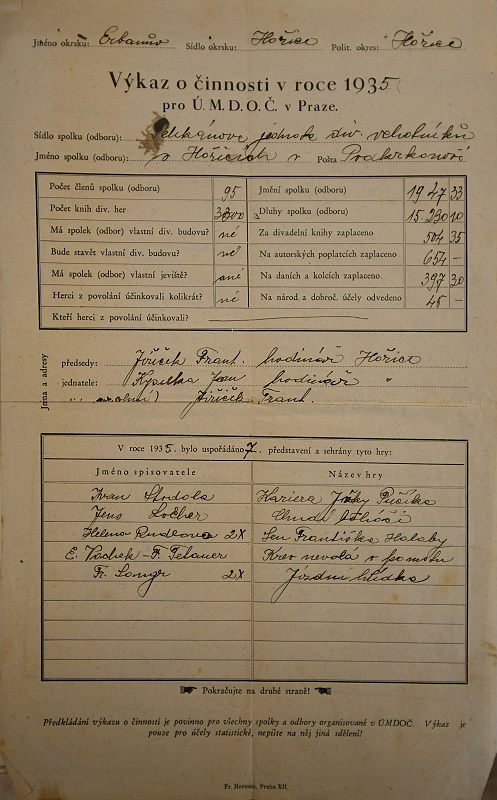 Jméno okrsku: Erbanův Sídlo okrsku: Hořice Polit. okres: Hořice
Výkaz o činnosti v roce 1935
pro Ú.M.D.O.Č. v Praze.
Sídlo spolku (odboru): Pelikánova jednota div. ochotníků
Jméno spolku (odboru): v Hořicích v Pošta Podkrkonoší
Počet členů spolku (odboru) 95 Jmění spolku (odboru) 1947 33
Počet knih div. her Dluhy spolku (odboru) 15.230 10
Má spolek (odbor) vlastní div. budovu? ne Za divadelní knihy zaplaceno 504 35
Bude stavět vlastní div. budovu? ne Na autorských poplatcích zaplaceno 654 –
Má spolek (odbor) vlastní jeviště? ano Na daních a kolcích zaplaceno 397 30
Herci z povolání účinkovali kolikrát? ne Na národ. a dobroč. účely odvedeno 45 –
Kteří herci z povolání účinkovali?
Jména a adresy
předsedy: Jiřiček Frant. hodinář Hořice
jednatele: Jan hodinář "
Jiřiček Frant.
V roce 1935. bylo uspořádáno 7. představení a sehrány tyto hry:
Jméno spisovatele Název hry
Ivan Stodola Kariera Jožky Pučíka
Jens Locher Chudí boháči
Helena Rudlova 2X Sen Františka Halaby
E. Vachek - Fr. Tetauer Krev nevolá o pomstu
Fr. Langr 2X Jízdní hlídka
Pokračujte na druhé straně!
Předkládání výkazu o činnosti je povinno pro všechny spolky a odbory organisované v ÚMDOČ. Výkaz je
pouze pro účely statistické, nepište na něj jiná sdělení!
Fr. Herman, Praha XII.